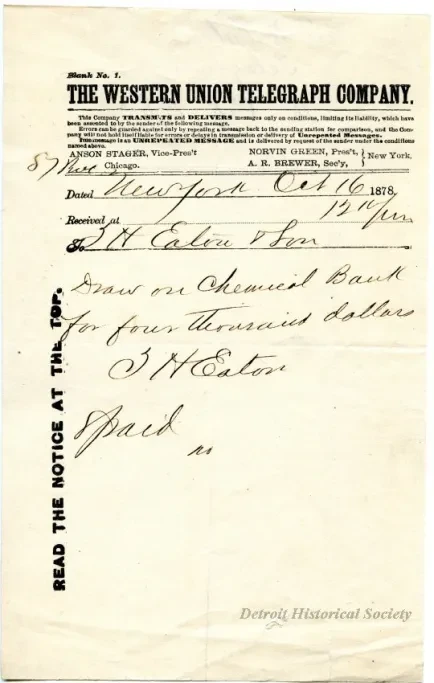 Blank No. 1.
THE WESTERN UNION TELEGRAPH COMPANY.
This Company TRANSMITS and DELIVERS messages only on conditions, limiting its liability, which have
been assented to by the sender of the following message.
Errors can be guarded against only by repeating a message back to the sending station for comparison, and the Com-
pany will not hold itself liable for errors or delays in transmission or delivery of Unrepeated Messages.
This message is an UNREPEATED MESSAGE and is delivered by request of the sender under the conditions
named above.
ANSON STAGER, Vice-Pres't NORVIN GREEN, Pres't, } New York.
Chicago. A. R. BREWER, Sec'y,
87
Dated New York Oct 16 1878,
Received at 12
To J H Eaton & Son
Draw on Chemical Bank
for four thousand dollars
J H Eaton
8 paid
READ THE NOTICE AT THE TOP.
Detroit Historical Society